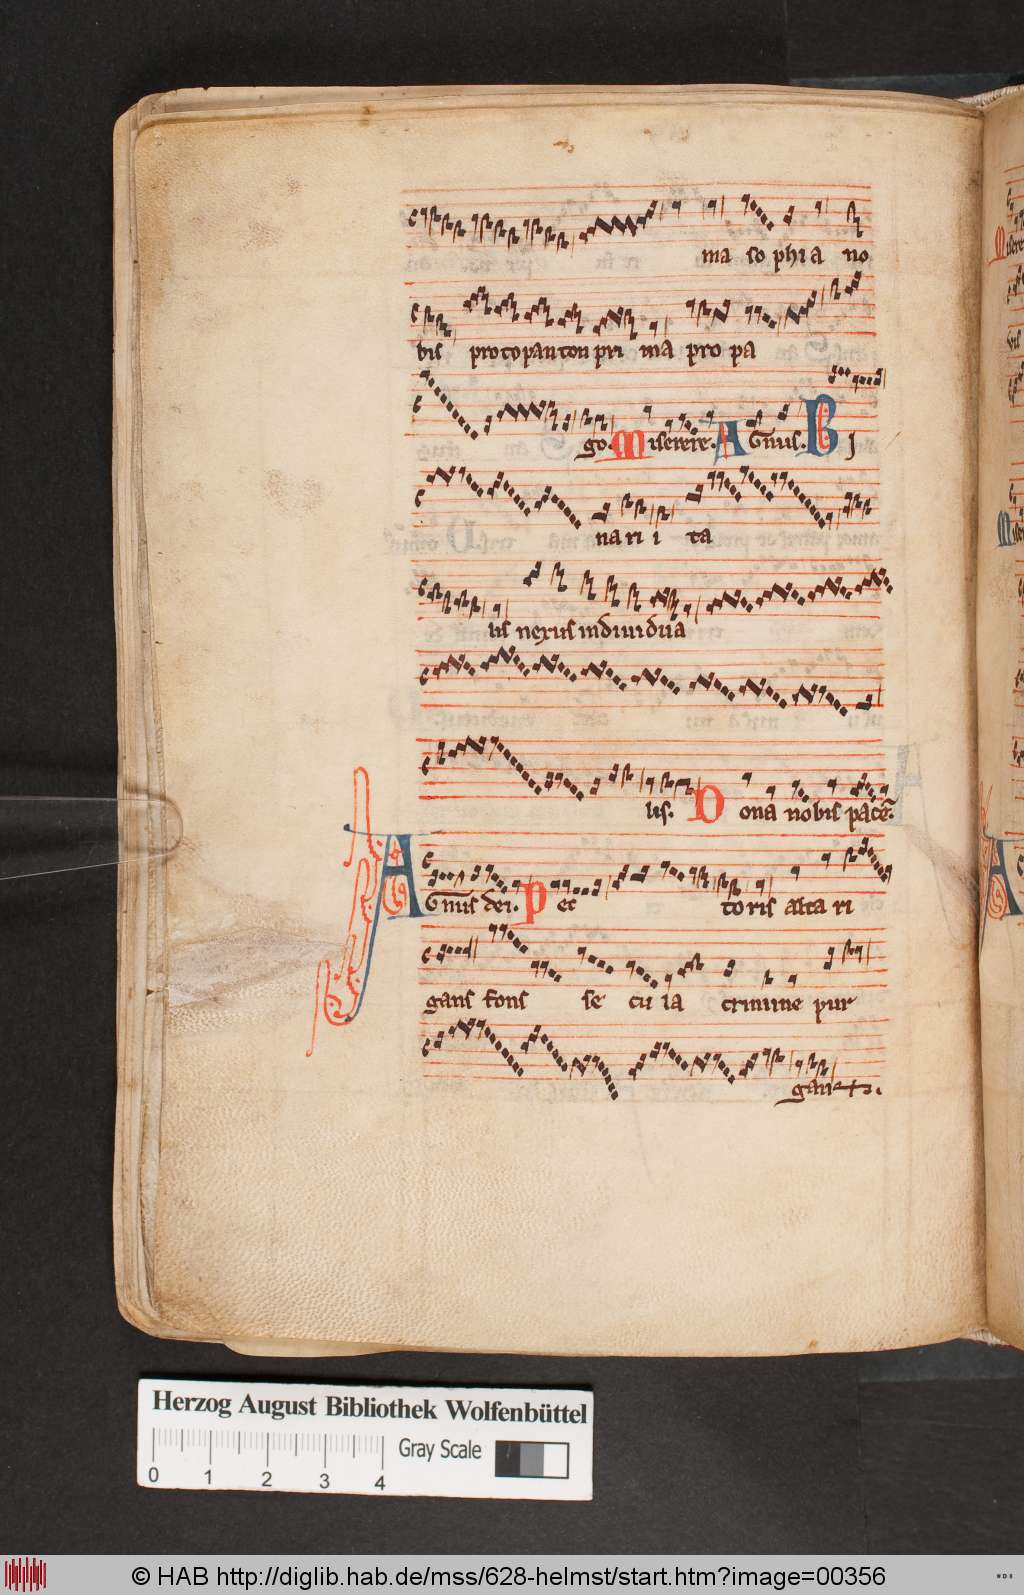 ma so phi a no
bis protopanton pri ma pro pa
go. Miserere. Agnus. Bi
na ri i ta
tis nexus individua
lis. Dona nobis pace.
Agnus dei. Pec toris alta ri
gans fons se cu la crimine pur
gans.
Herzog August Bibliothek Wolfenbüttel
Gray Scale
0 1 2 3 4
© HAB http://diglib.hab.de/mss/628-helmst/start.htm?image=00356